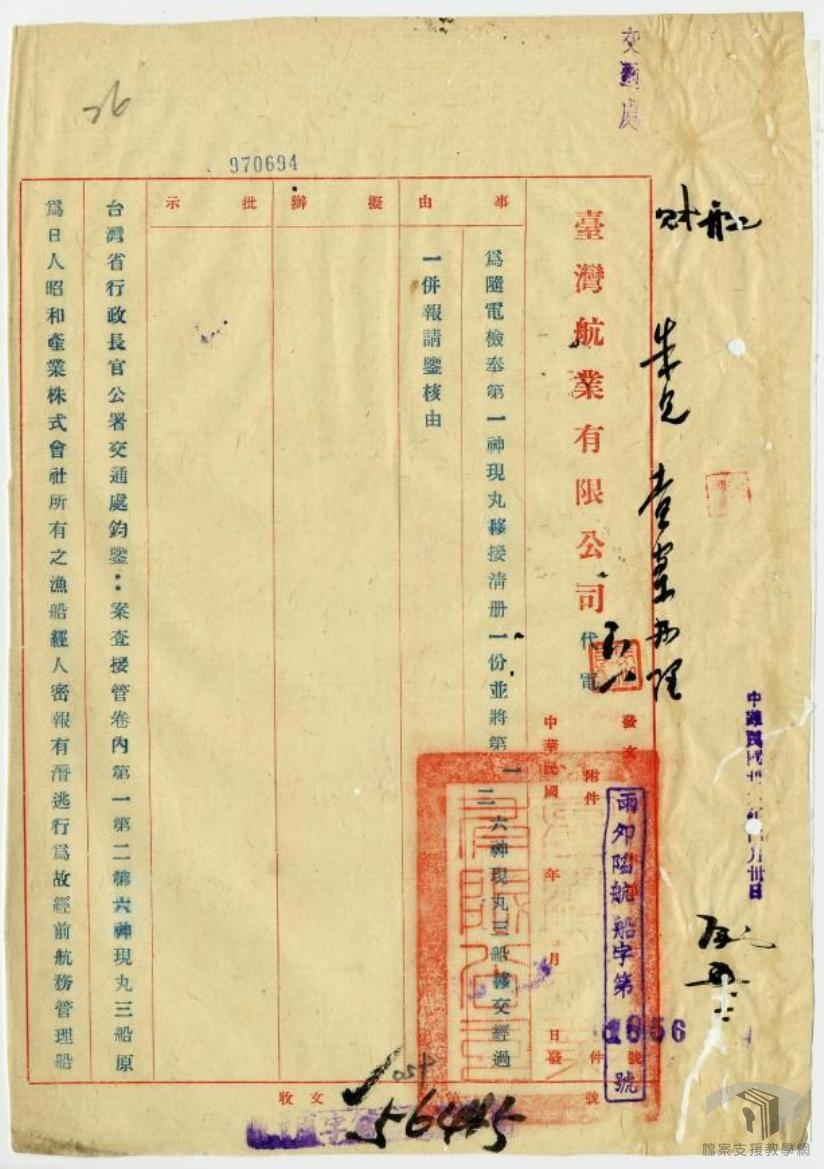 交通處
財航
臺灣航業有限公司代電
中華民國 年 月 日發
附件
件
雨卯陷航船字第1656號
事由
為隨電檢奉第一神現丸移接清册一份並將第一二六神現丸三船移交經過
一併報請鑒核由
擬辦
批示
台灣省行政長官公署交通處鈞鑒：案查接管卷內第一第二第六神現丸三船原
為日人昭和產業株式會社所有之漁船經人密報有潛逃行為故經前航務管理船
970694
26
收文
字第
56445
號
檔案支援教學網